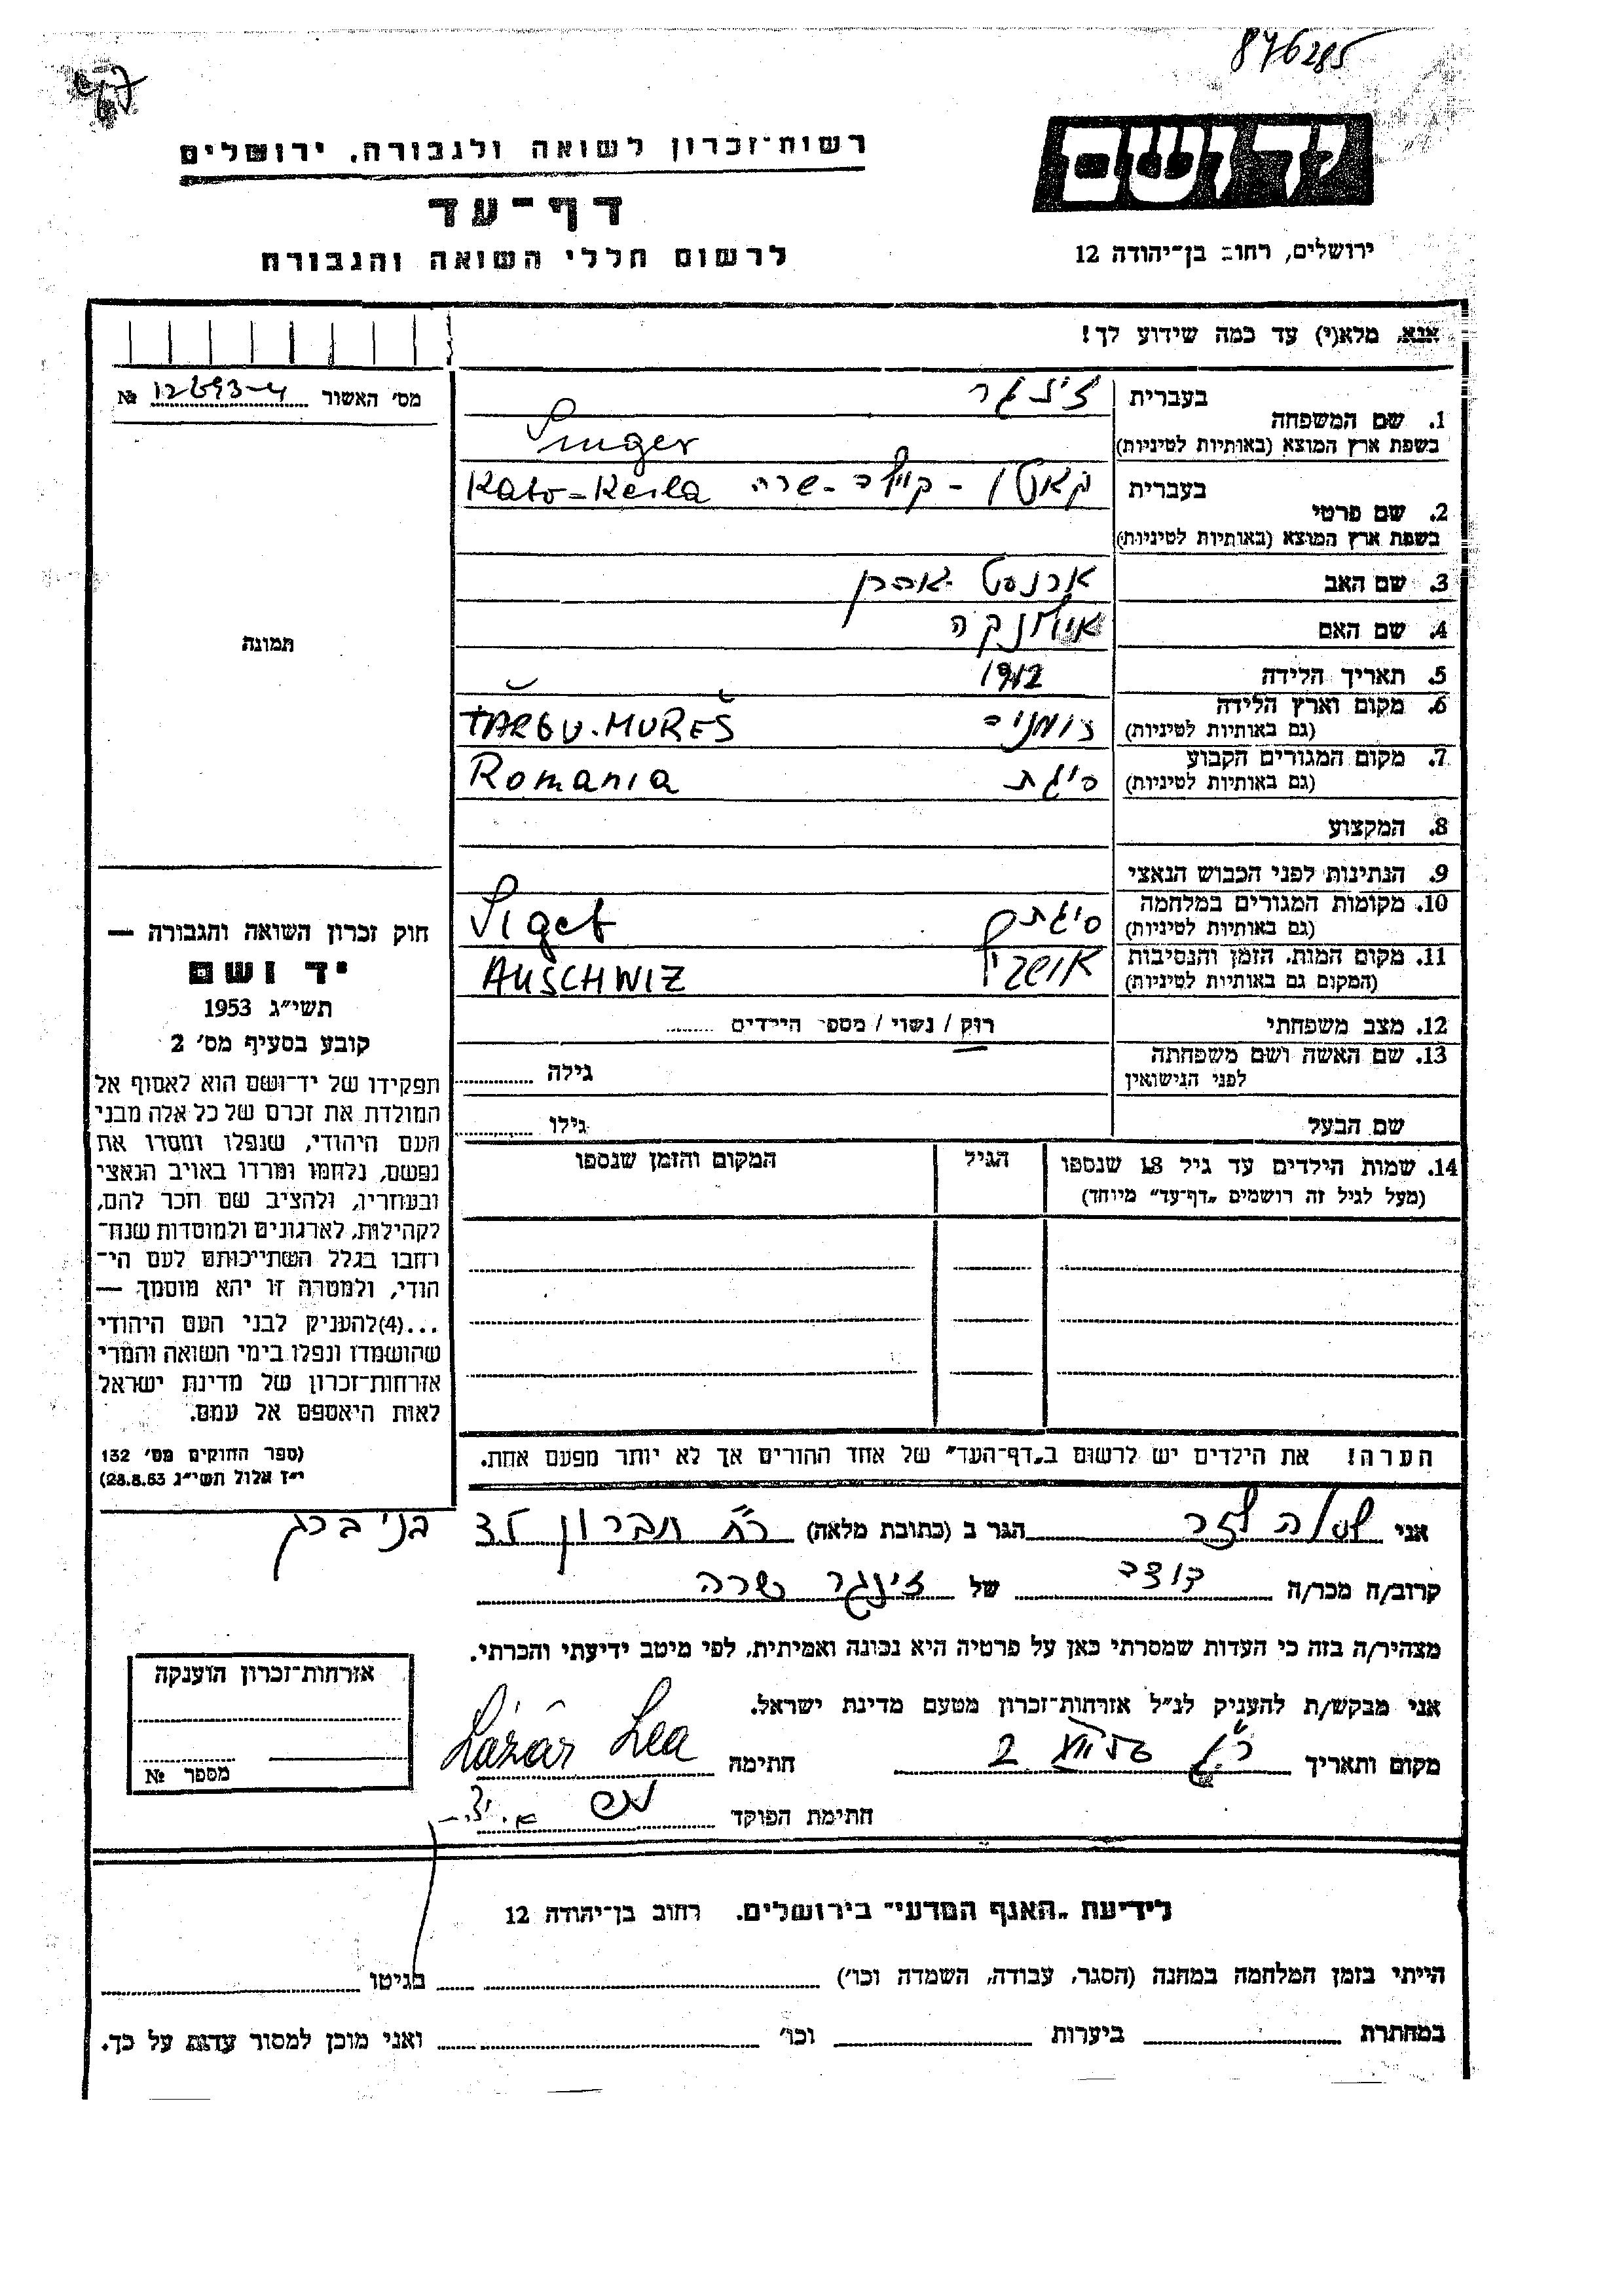 876285
רשות־זכרון לשואה ולגבורה, ירושלים
יד ושם
דף־עד
לרשום חללי השואה והגבורה
ירושלים, רחוב בן־יהודה 12
אנא, מלא(י) עד כמה שידוע לך!
מס' האשור № 12693-4
תמונה
1. שם המשפחה בעברית זינגר
בשפת ארץ המוצא (באותיות לטיניות) Singer
2. שם פרטי בעברית קאטו - קיילה - שרה Kato-Keila
בשפת ארץ המוצא (באותיות לטיניות)
3. שם האב ארנסט
4. שם האם
5. תאריך הלידה 1912
6. מקום וארץ הלידה (גם באותיות לטיניות) רומניה TÂRGU-MUREȘ
7. מקום המגורים הקבוע (גם באותיות לטיניות) סיגת Romania
8. המקצוע
9. הנתינות לפני הכבוש הנאצי
10. מקומות המגורים במלחמה (גם באותיות לטיניות) סיגת Siget
11. מקום המות, הזמן והנסיבות (המקום גם באותיות לטיניות) אושוויץ AUSCHWIZ
12. מצב משפחתי רוק / נשוי / מספר הילדים
13. שם האשה ושם משפחתה לפני הנישואין גילה
שם הבעל גילו
14. שמות הילדים עד גיל 18 שנספו הגיל המקום והזמן שנספו
(מעל לגיל זה רושמים „דף־עד" מיוחד)
חוק זכרון השואה והגבורה —
יד ושם
תשי״ג 1953
קובע בסעיף מס' 2
תפקידו של יד־ושם הוא לאסוף אל
המולדת את זכרם של כל אלה מבני
העם היהודי, שנפלו ומסרו את
נפשם, נלחמו ומרדו באויב הנאצי
ובעוזריו, ולהציב שם וזכר להם,
לקהילות, לארגונים ולמוסדות שנח־
רבו בגלל השתייכותם לעם הי־
הודי, ולמטרה זו יהא מוסמך —
...(4)להעניק לבני העם היהודי
שהושמדו ונפלו בימי השואה והמרי
אזרחות־זכרון של מדינת ישראל
לאות היאספם אל עמם.
(ספר החוקים מס' 132
י״ז אלול תשי״ג 28.8.53)
הערה! את הילדים יש לרשום ב„דף־העד" של אחד ההורים אך לא יותר מפעם אחת.
אני לאה לזר הגר ב (כתובת מלאה) רח' חברון בני ברק
קרוב/ה מכר/ה דודה של זינגר שרה
מצהיר/ה בזה כי העדות שמסרתי כאן על פרטיה היא נכונה ואמיתית, לפי מיטב ידיעתי והכרתי.
אני מבקש/ת להעניק לנ״ל אזרחות־זכרון מטעם מדינת ישראל.
מקום ותאריך חתימה Lázár Lea
חתימת הפוקד
אזרחות־זכרון הוענקה
מספר №
לידיעת „האגף המדעי" בירושלים. רחוב בן־יהודה 12
הייתי בזמן המלחמה במחנה (הסגר, עבודה, השמדה וכו') בגיטו
במחתרת ביערות וכו' ואני מוכן למסור עדות על כך.